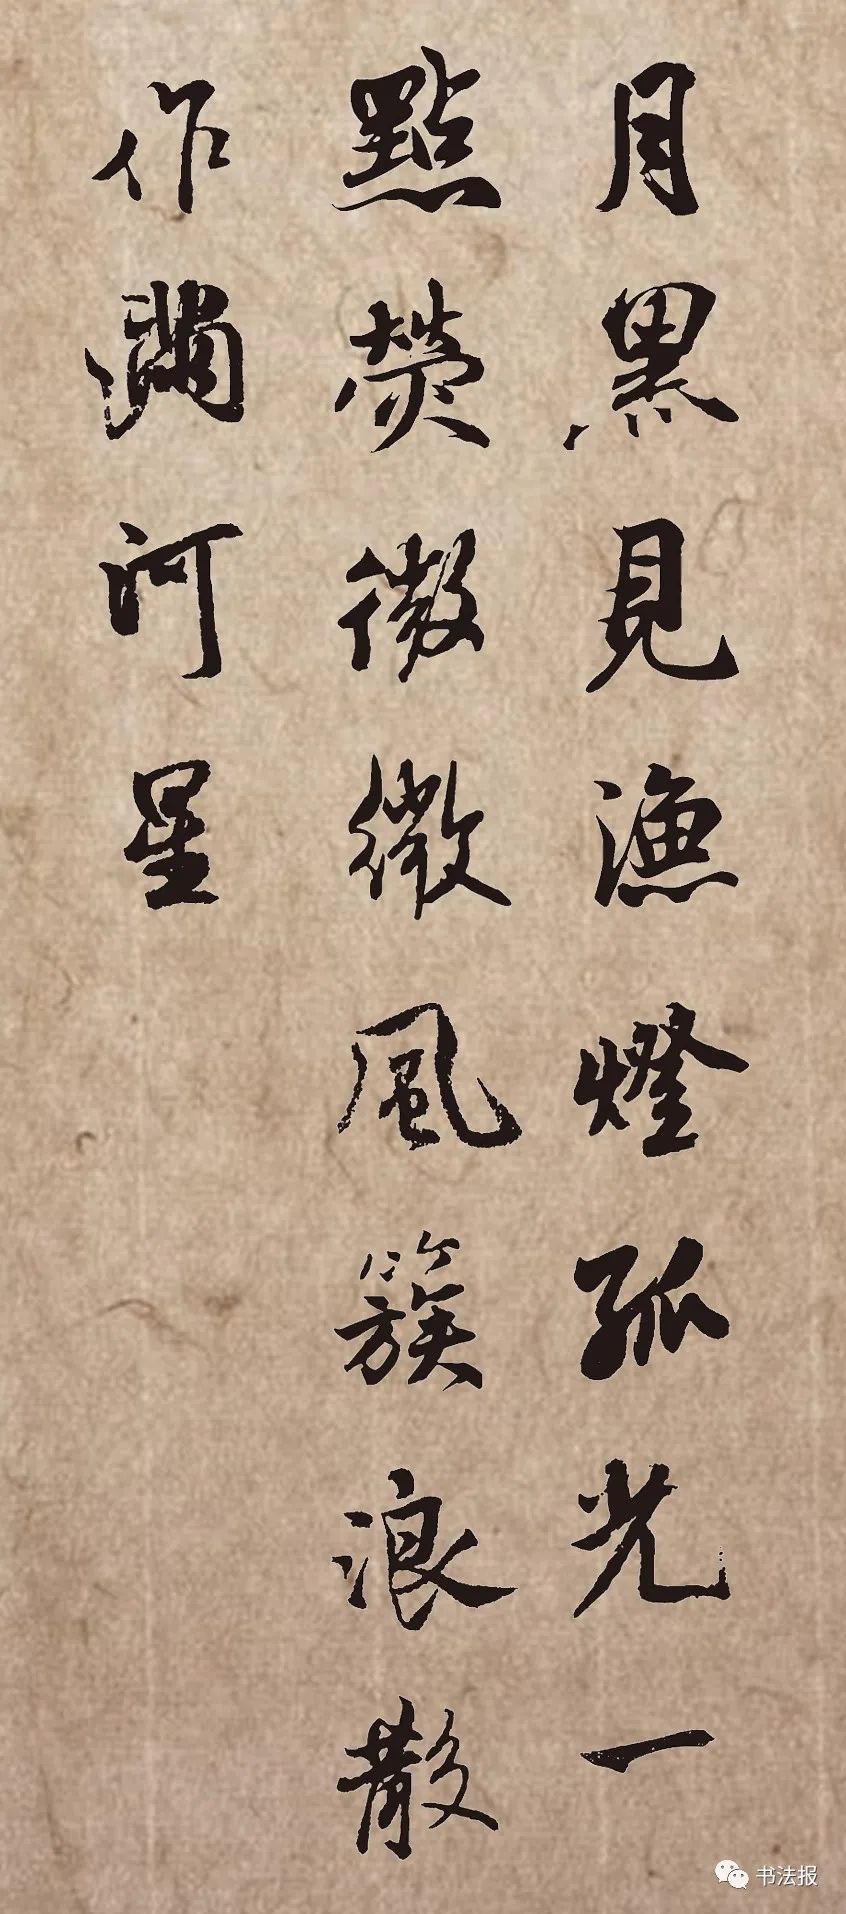 月黑見漁燈孤光一
點熒微微風簇浪散
作滿河星
书法报